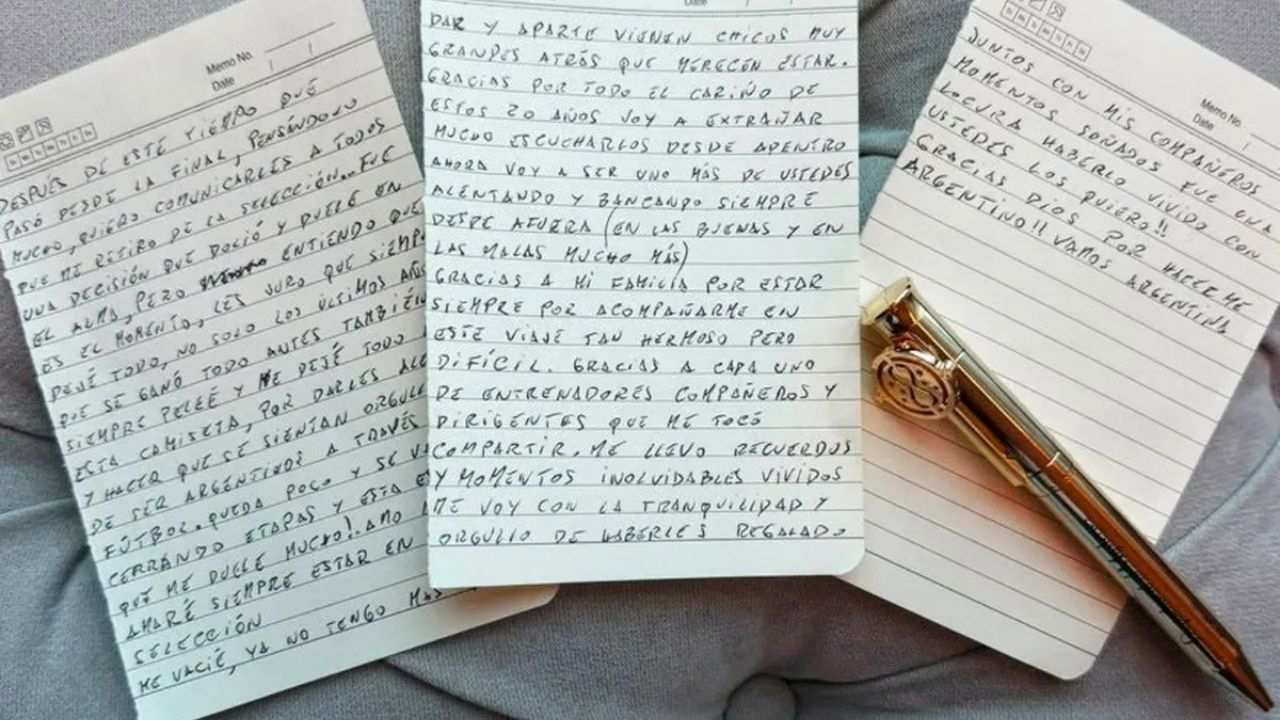 Memo No.
Date
DESPUÉS DE ESTE TIEMPO QUE
PASÓ DESDE LA FINAL, PENSÁNDOLO
MUCHO, QUIERO COMUNICARLES A TODOS
QUE ME RETIRO DE LA SELECCIÓN.. FUE
UNA DECISIÓN QUE DOLIÓ Y DUELE EN
EL ALMA, PERO ENTIENDO QUE
ES EL MOMENTO, LES JURO QUE SIEMP
DEJÉ TODO, NO SOLO LOS ÚLTIMOS AÑOS
QUE SE GANÓ TODO ANTES TAMBIÉN
SIEMPRE PELEÉ Y ME DEJÉ TODO
ESTA CAMISETA, POR DARLES ALE
Y HACER QUE SE SIENTAN ORGULL
DE SER ARGENTINOS A TRAVÉS
FÚTBOL. QUEDA POCO Y SE VA
CERRANDO ETAPAS Y ESTA E
QUE ME DUELE MUCHO! AMO A
AMARÉ SIEMPRE ESTAR EN
SELECCIÓN
ME VACIÉ, YA NO TENGO MÁS
Date
DAR Y APARTE VIENEN CHICOS MUY
GRANDES ATRÁS QUE MERECEN ESTAR.
GRACIAS POR TODO EL CARIÑO DE
ESTOS 20 AÑOS VOY A EXTRAÑAR
MUCHO ESCUCHARLOS DESDE ADENTRO
AHORA VOY A SER UNO MÁS DE USTEDES
ALENTANDO Y BANCANDO SIEMPRE
DESDE AFUERA (EN LAS BUENAS Y EN
LAS MALAS MUCHO MÁS)
GRACIAS A MI FAMILIA POR ESTAR
SIEMPRE POR ACOMPAÑARME EN
ESTE VIAJE TAN HERMOSO PERO
DIFÍCIL. GRACIAS A CADA UNO
DE ENTRENADORES COMPAÑEROS Y
DIRIGENTES QUE ME TOCÓ
COMPARTIR. ME LLEVO RECUERDOS
Y MOMENTOS INOLVIDABLES VIVIDOS
ME VOY CON LA TRANQUILIDAD Y
ORGULLO DE HABERLES REGALADO
Memo No.
Date
JUNTOS CON MIS COMPAÑEROS
MOMENTOS SOÑADOS FUE UNA
LOCURA HABERLO VIVIDO CON
USTEDES LOS QUIERO!!
GRACIAS DIOS POR HACERME
ARGENTINO!! VAMOS ARGENTINA